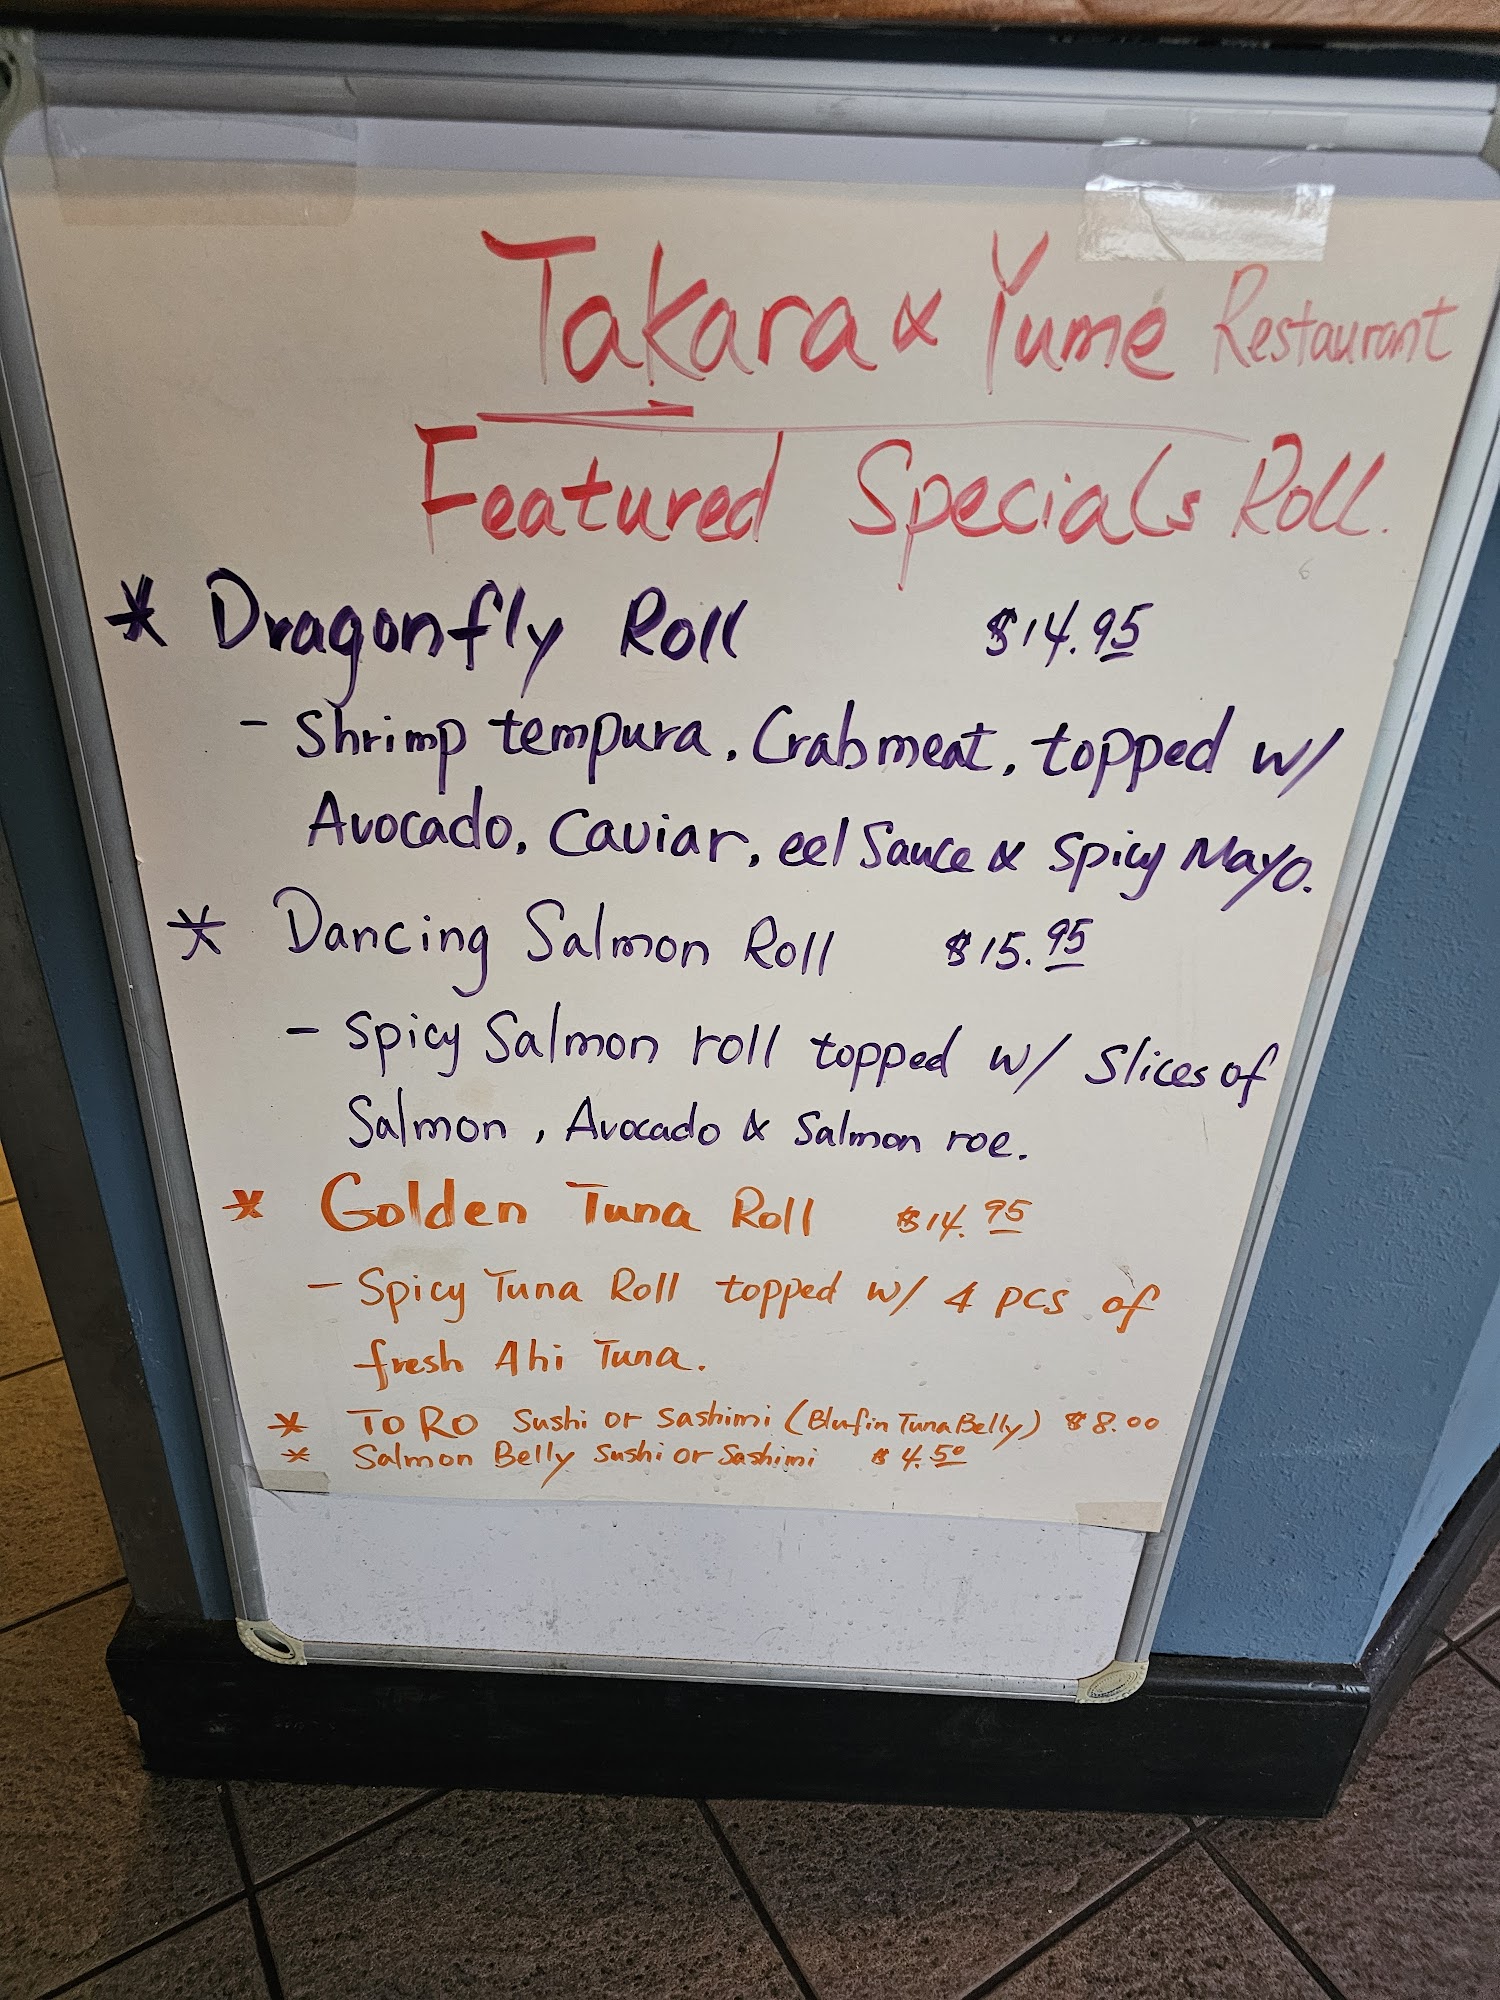 Takara & Yume Restaurant
Featured Specials Roll.
* Dragonfly Roll $14.95
- Shrimp tempura, Crabmeat, topped w/
Avocado, Caviar, eel Sauce & Spicy Mayo.
* Dancing Salmon Roll $15.95
- Spicy Salmon roll topped w/ Slices of
Salmon, Avocado & Salmon roe.
* Golden Tuna Roll $14.95
- Spicy Tuna Roll topped w/ 4 pcs of
fresh Ahi Tuna.
* TORO Sushi or Sashimi (Blufin Tuna Belly) $8.00
* Salmon Belly Sushi or Sashimi $4.50